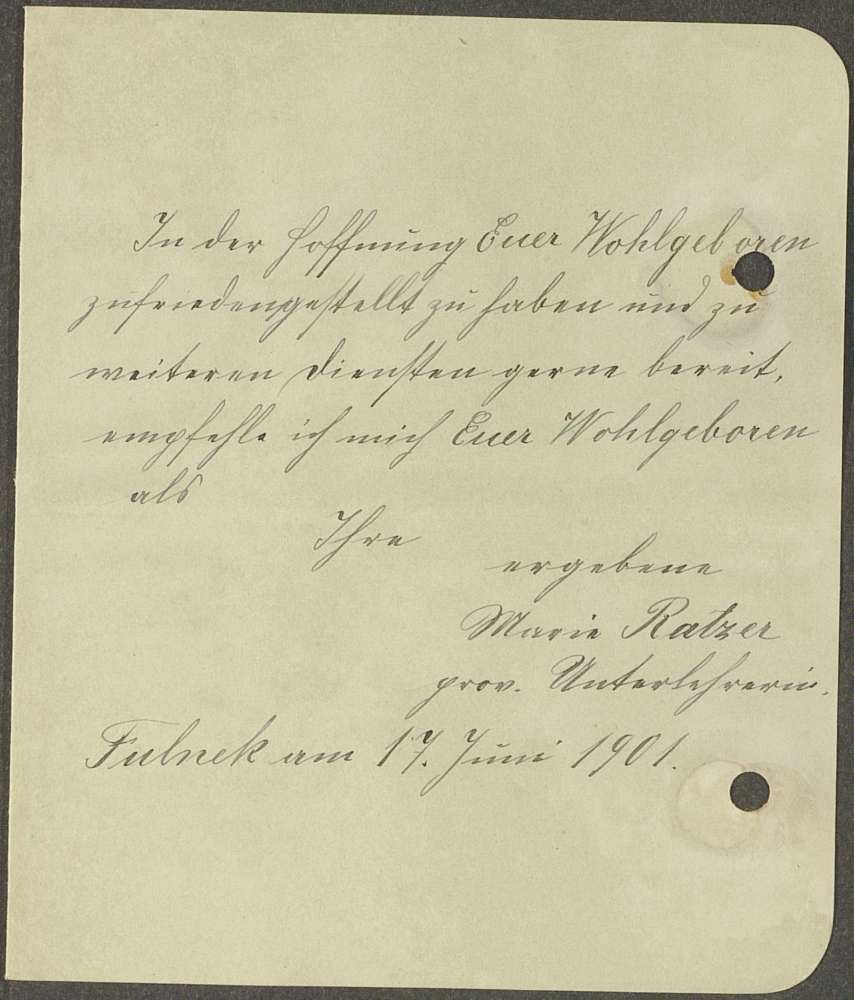 In der Hoffnung Euer Wohlgeboren
zufriedengestellt zu haben und zu
weiteren Diensten gerne bereit,
empfehle ich mich Euer Wohlgeboren
als
Ihre
ergebene
Marie Ratzer
prov. Unterlehrerin.
Fulnek am 17. Juni 1901.